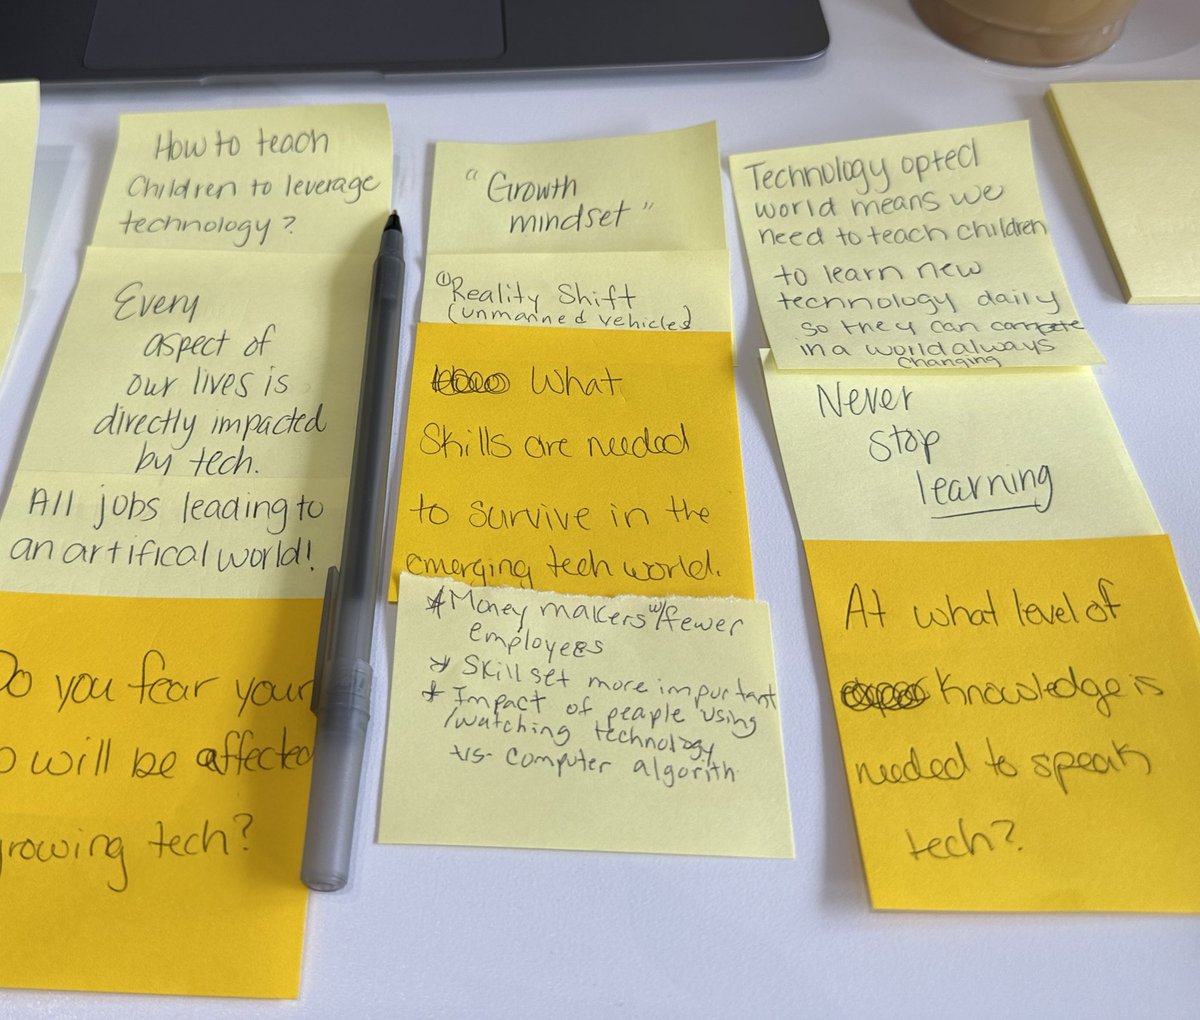 How to teach
Children to leverage
technology?
Every
aspect of
our lives is
directly impacted
by tech.
All jobs leading to
an artifical world!
Do you fear your
will be affected
growing tech?
"Growth
mindset"
① Reality Shift
(unmanned vehicles)
What
Skills are needed
to survive in the
emerging tech world.
* Money makers w/fewer
employees
* Skill set more important
* Impact of people using
/watching technology
vs. computer algorith
Technology opted
world means we
need to teach children
to learn new
technology daily
so they can compete
in a world always
Changing
Never
stop
learning
At what level of
knowledge is
needed to speak
tech?